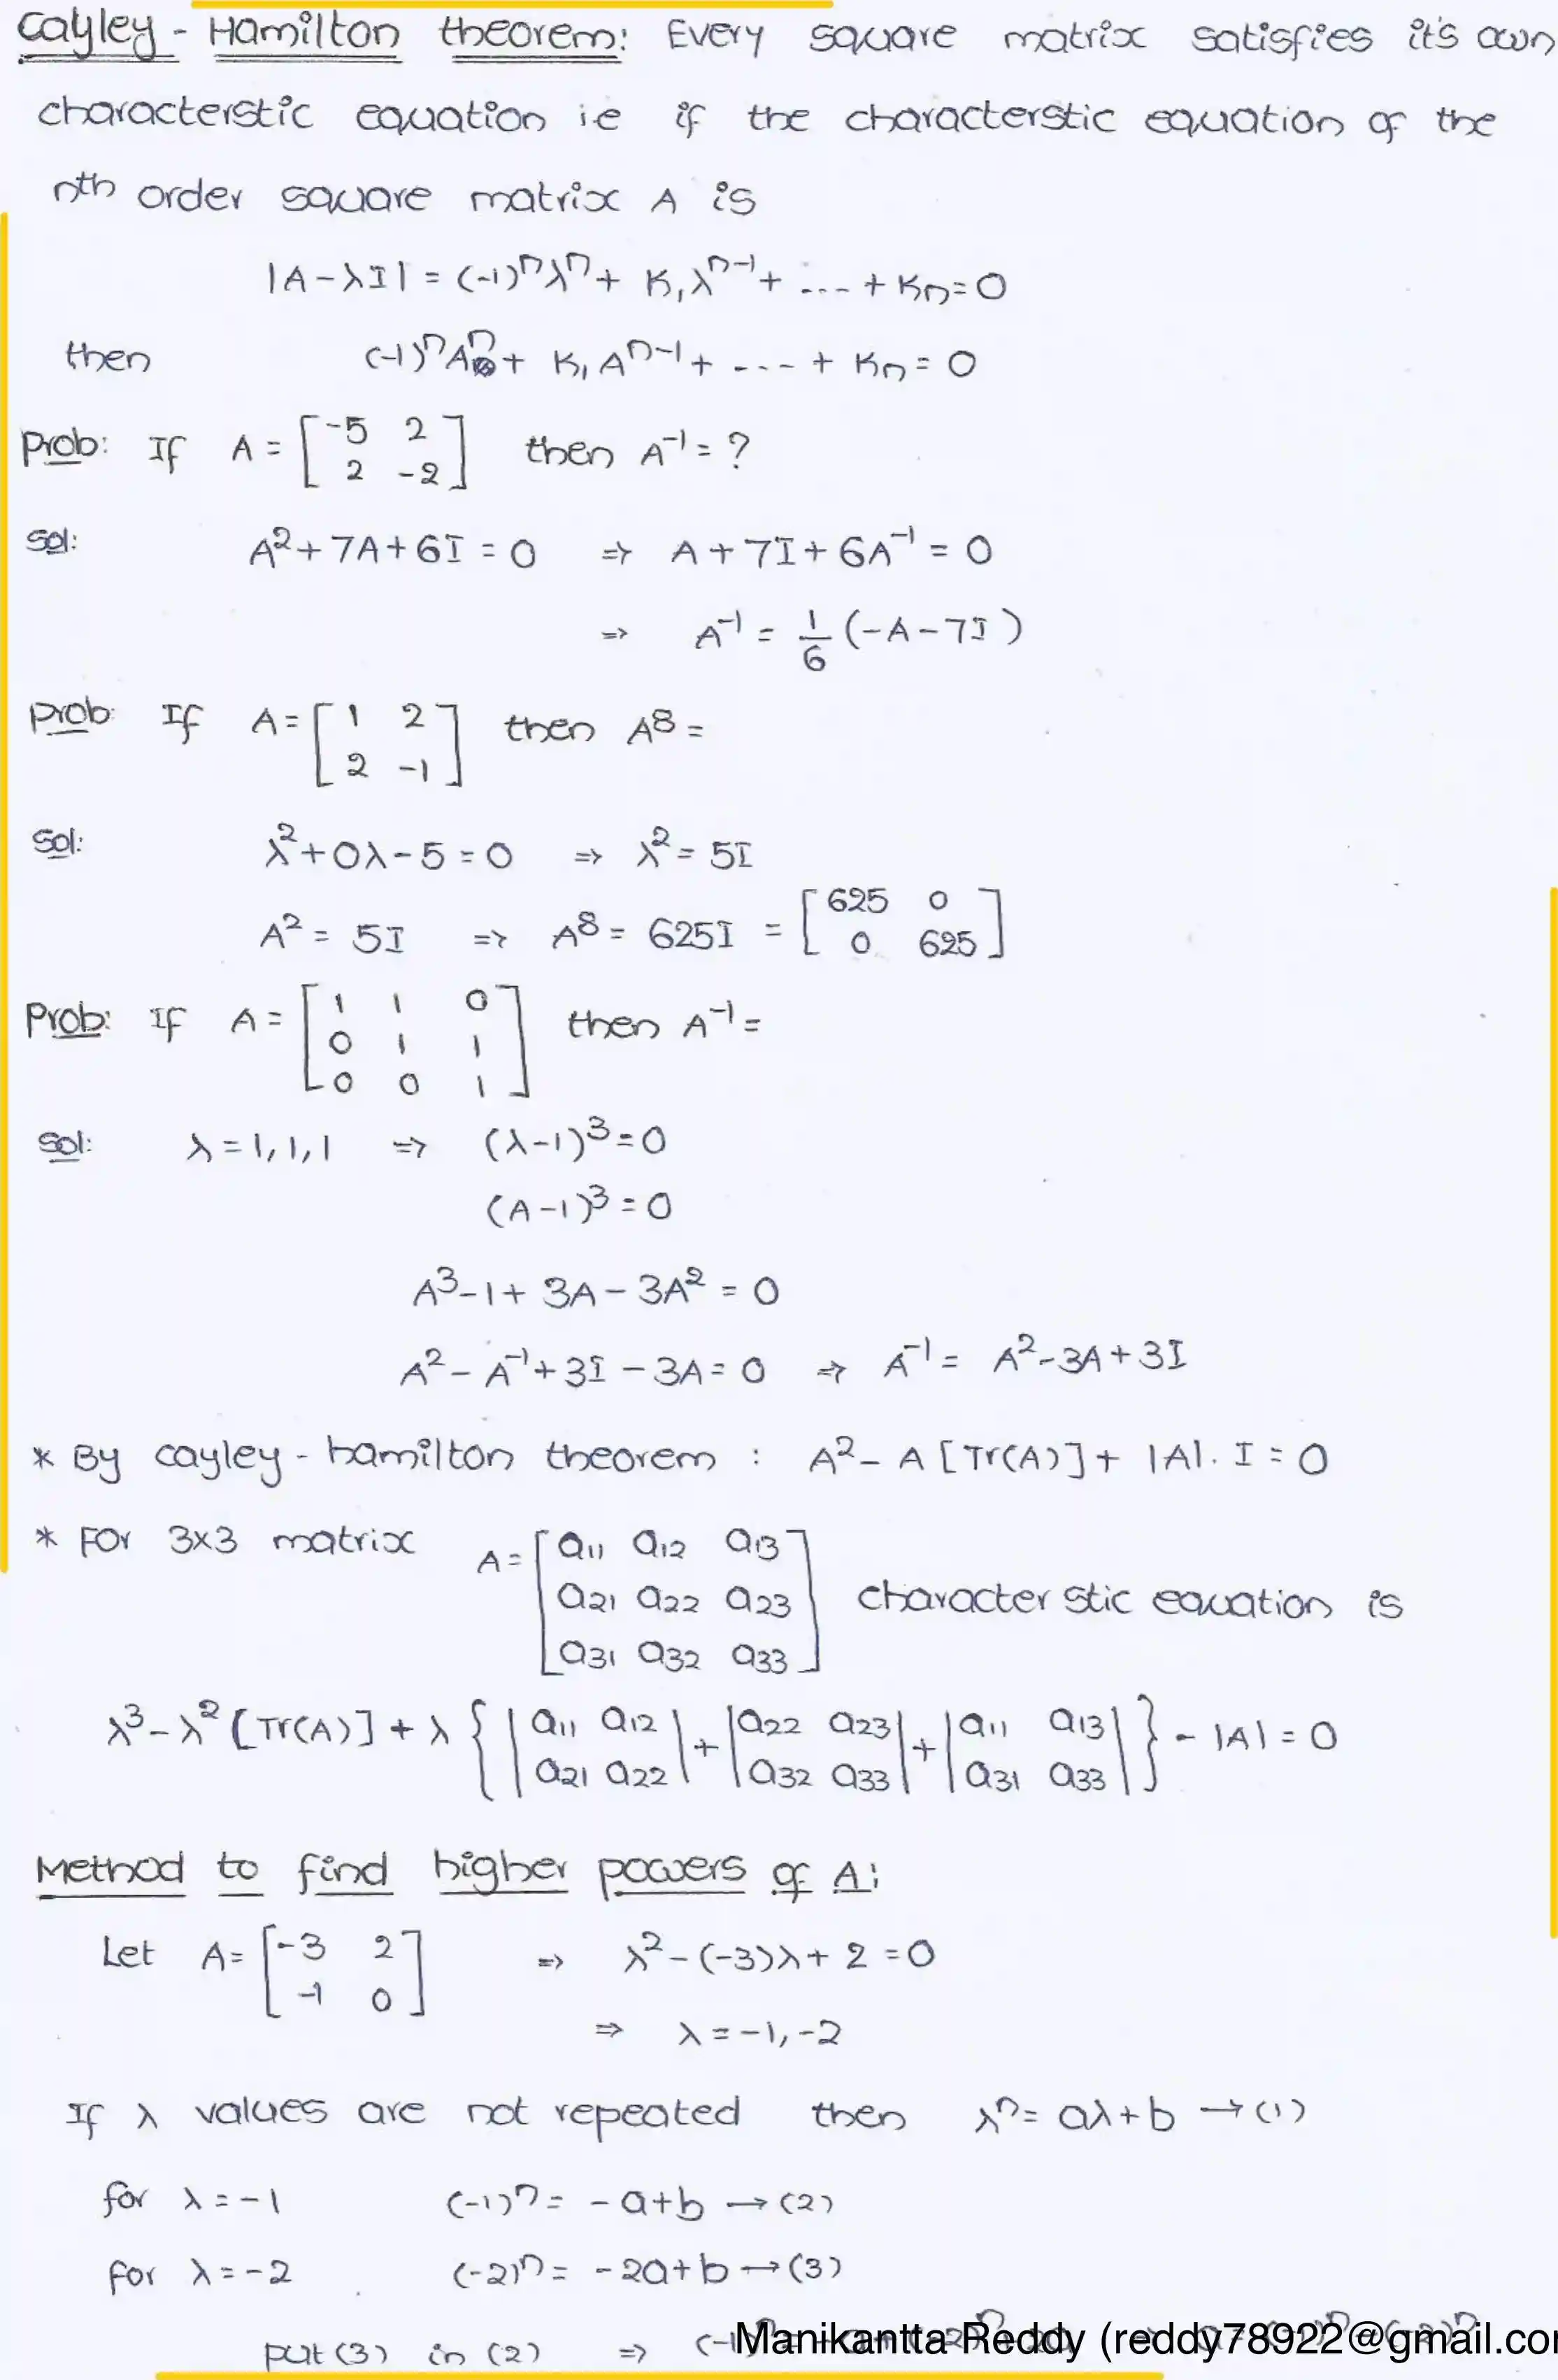 Cayley - Hamilton theorem: Every square matrix satisfies it's own
characterstic equation i.e if the characterstic equation of the
nth order square matrix A is
|A-λI| = (-1)ⁿλⁿ + K₁λⁿ⁻¹ + .... + Kn = 0
then (-1)ⁿAⁿ + K₁Aⁿ⁻¹ + ---- + Kn = 0
Prob: If A = [-5 2
2 -2] then A⁻¹ = ?
Sol: A² + 7A + 6I = 0 ⇒ A + 7I + 6A⁻¹ = 0
⇒ A⁻¹ = 1/6 (-A - 7I)
Prob: If A = [1 2
2 -1] then A⁸ =
Sol: λ² + 0λ - 5 = 0 ⇒ λ² = 5I
A² = 5I ⇒ A⁸ = 625I = [625 0
0 625]
Prob: If A = [1 1 0
0 1 1
0 0 1] then A⁻¹ =
Sol: λ = 1, 1, 1 ⇒ (λ-1)³ = 0
(A-1)³ = 0
A³ - 1 + 3A - 3A² = 0
A² - A⁻¹ + 3I - 3A = 0 ⇒ A⁻¹ = A² - 3A + 3I
* By cayley - hamilton theorem : A² - A [Tr(A)] + |A|. I = 0
* For 3x3 matrix A = [a₁₁ a₁₂ a₁₃
a₂₁ a₂₂ a₂₃
a₃₁ a₃₂ a₃₃] character stic equation is
λ³ - λ² [Tr(A)] + λ { |a₁₁ a₁₂
a₂₁ a₂₂| + |a₂₂ a₂₃
a₃₂ a₃₃| + |a₁₁ a₁₃
a₃₁ a₃₃| } - |A| = 0
Method to find higher powers of A:
Let A = [-3 2
-1 0] ⇒ λ² - (-3)λ + 2 = 0
⇒ λ = -1, -2
If λ values are not repeated then λⁿ = aλ + b → (1)
for λ = -1 (-1)ⁿ = -a + b → (2)
for λ = -2 (-2)ⁿ = -2a + b → (3)
put (3) in (2) ⇒
Manikantta Reddy (reddy78922@gmail.co